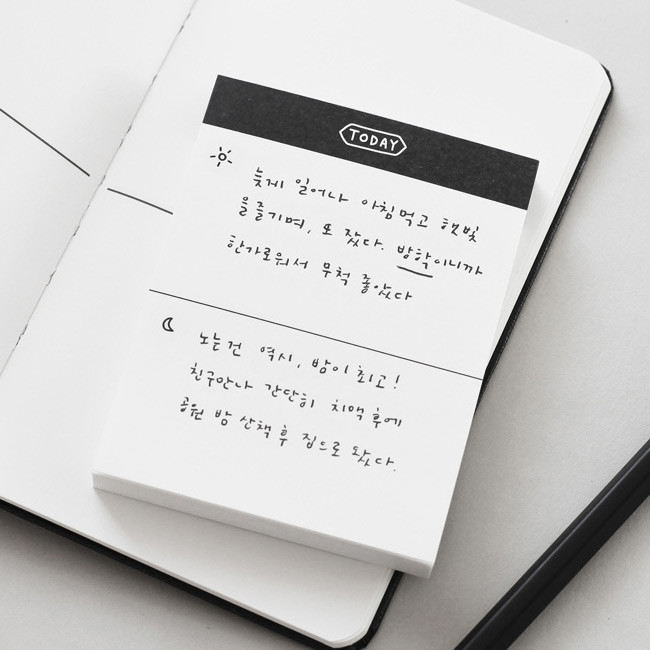 TODAY
늦게 일어나 아침먹고 햇빛
을즐기며, 또 잤다. 방학이니까
한가로워서 무척 좋았다
노는건 역시, 밤이 최고!
친구만나 간단히 치맥 후에
공원 밤 산책 후 집으로 왔다.